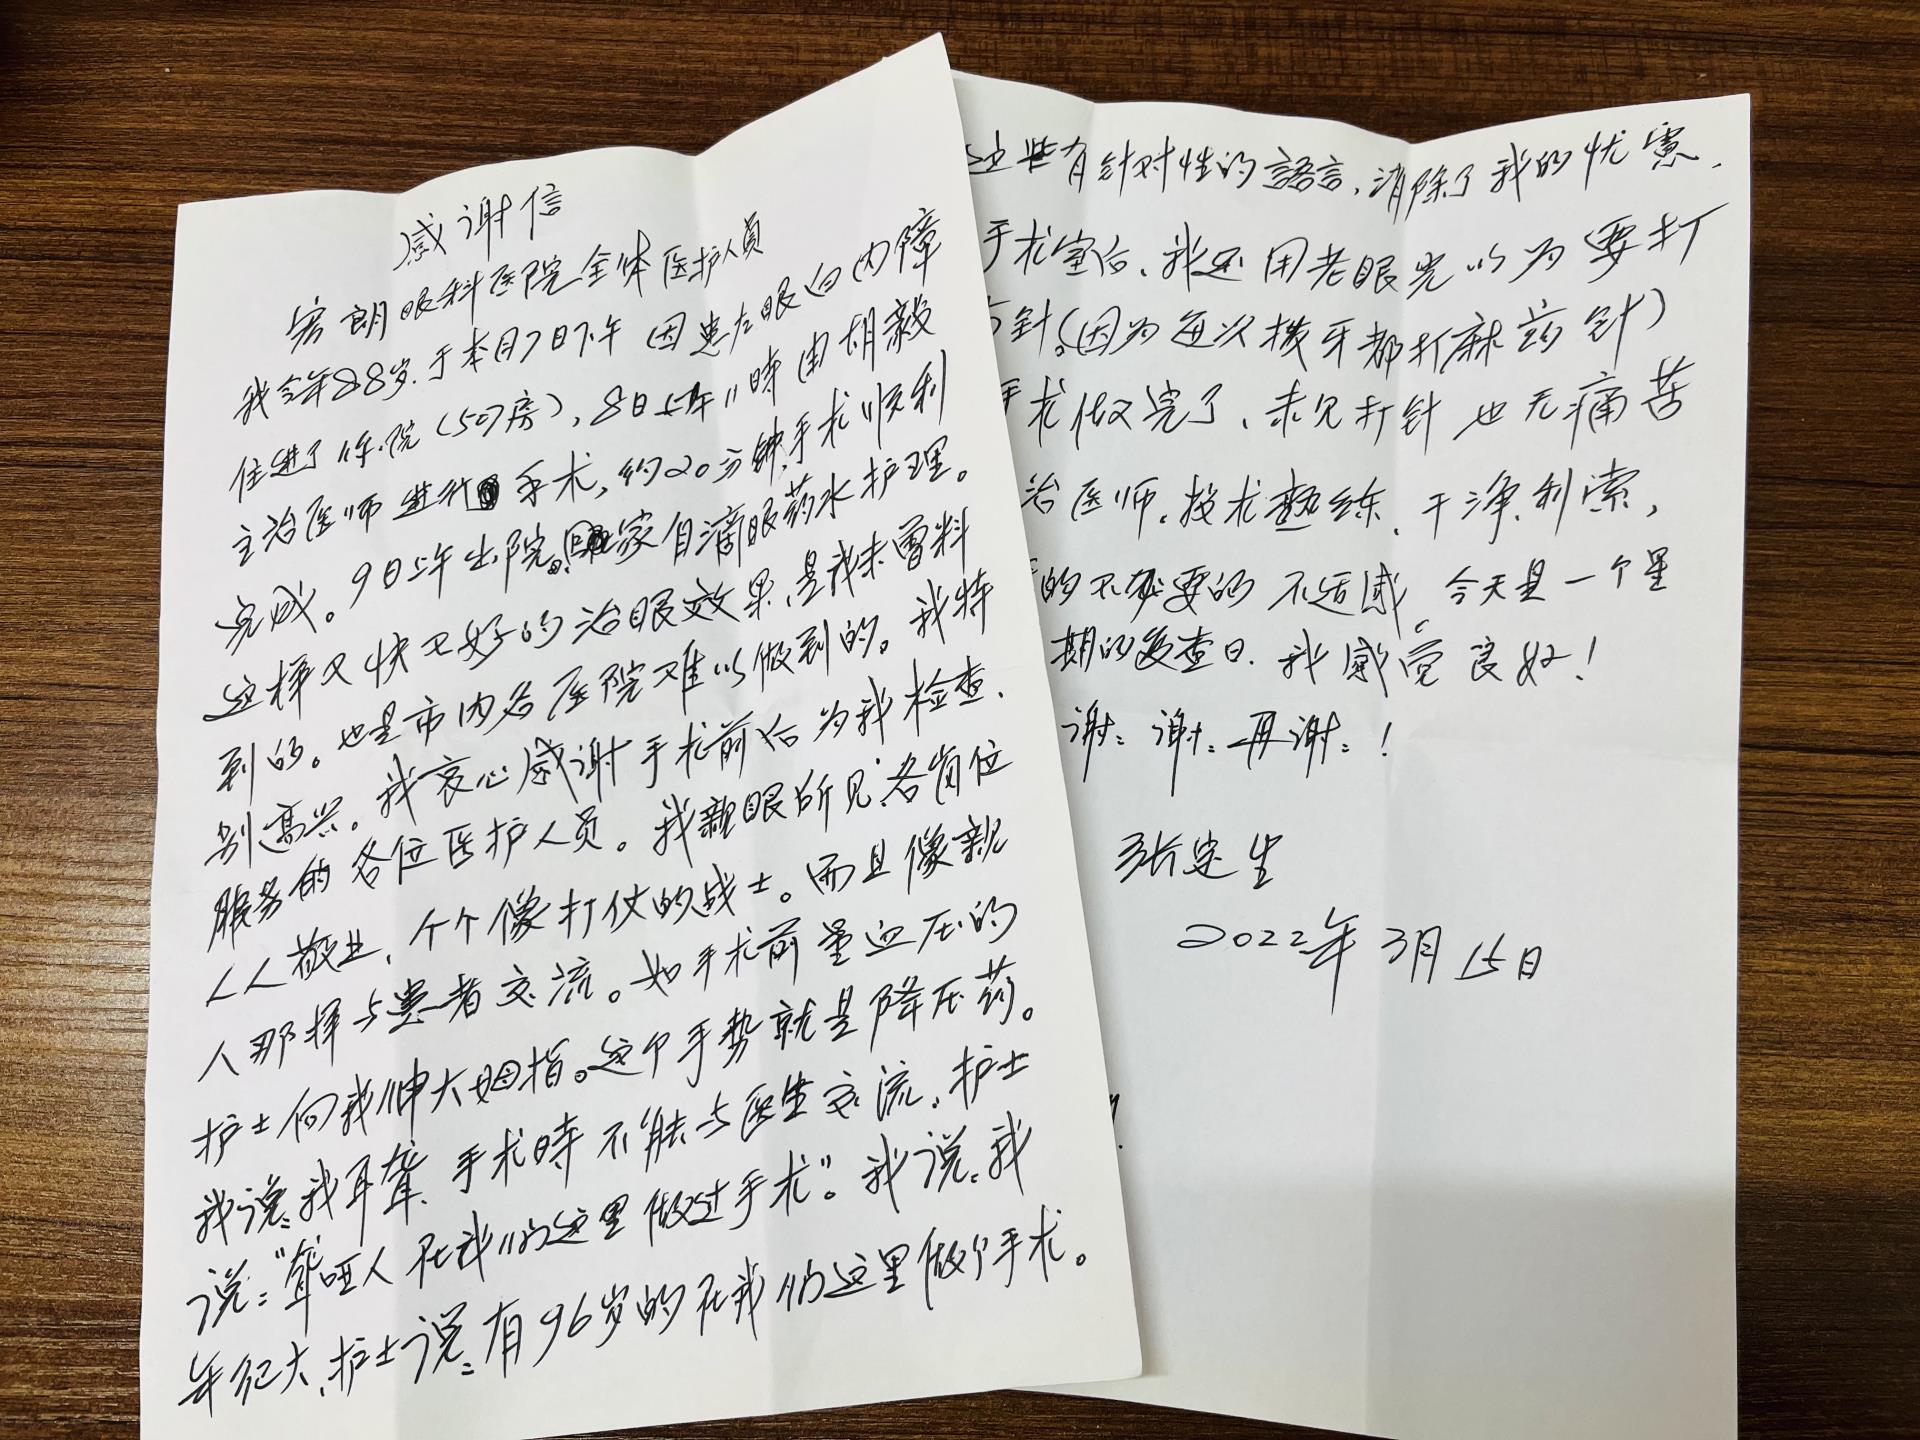 感谢信
宏朗眼科医院全体医护人员
我今年88岁.于本月7日下午因患左眼白内障
住进了你院(507房),8日上午11时由胡毅
主治医师进行手术,约20分钟,手术顺利
完成。9日上午出院。回家自滴眼药水护理。
这样又快又好的治眼效果,是我未曾料
到的。也是市内各医院难以做到的。我特
别高兴。我衷心感谢手术前后为我检查、
服务的各位医护人员。我亲眼所见,各岗位
人人敬业,个个像打仗的战士。而且像亲
人那样与患者交流。如手术前量血压的
护士向我伸大姆指。这个手势就是降压药。
我说:我耳聋、手术时不能与医生交流,护士
说:"聋哑人在我们这里做过手术"。我说,我
年纪大,护士说:有96岁的在我们这里做个手术。
这些有针对性的語言,消除了我的忧虑.
手术室后、我还用老眼光以为要打
针(因为每次拨牙都打麻药针)
手术做完了、未见打针也无痛苦
治医师.技术熟练、干净利索,
的不必要的不适感。今天是一个星
期的复查日.我感觉良好!
谢:谢:再谢:!
张定生
2022年3月15日